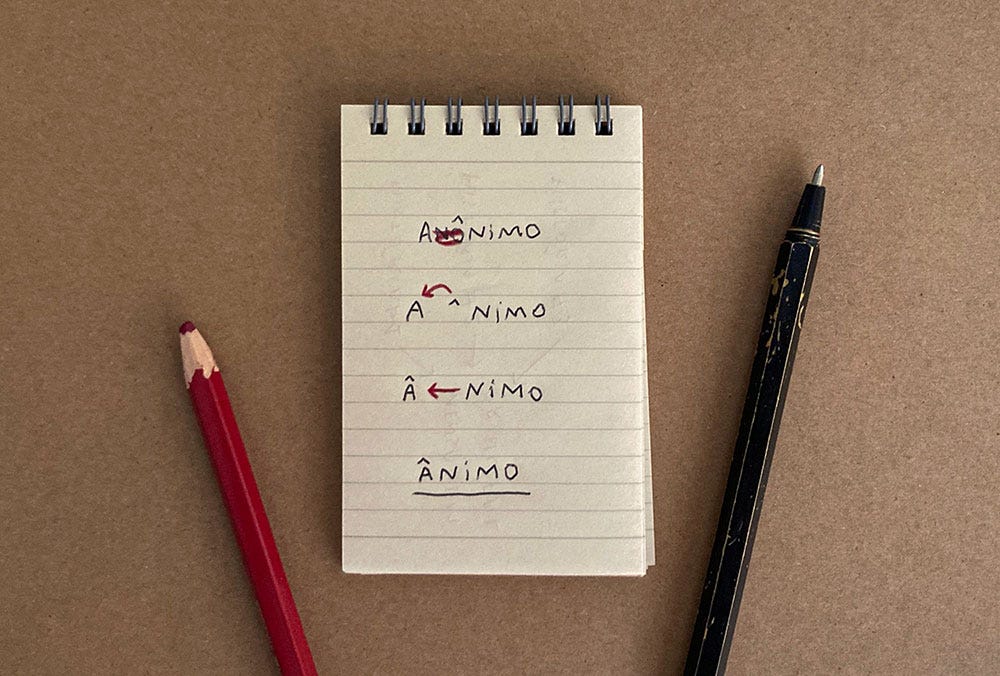 ANÔNIMO
A ^ NiMO
 ← NiMO
ÂNiMO